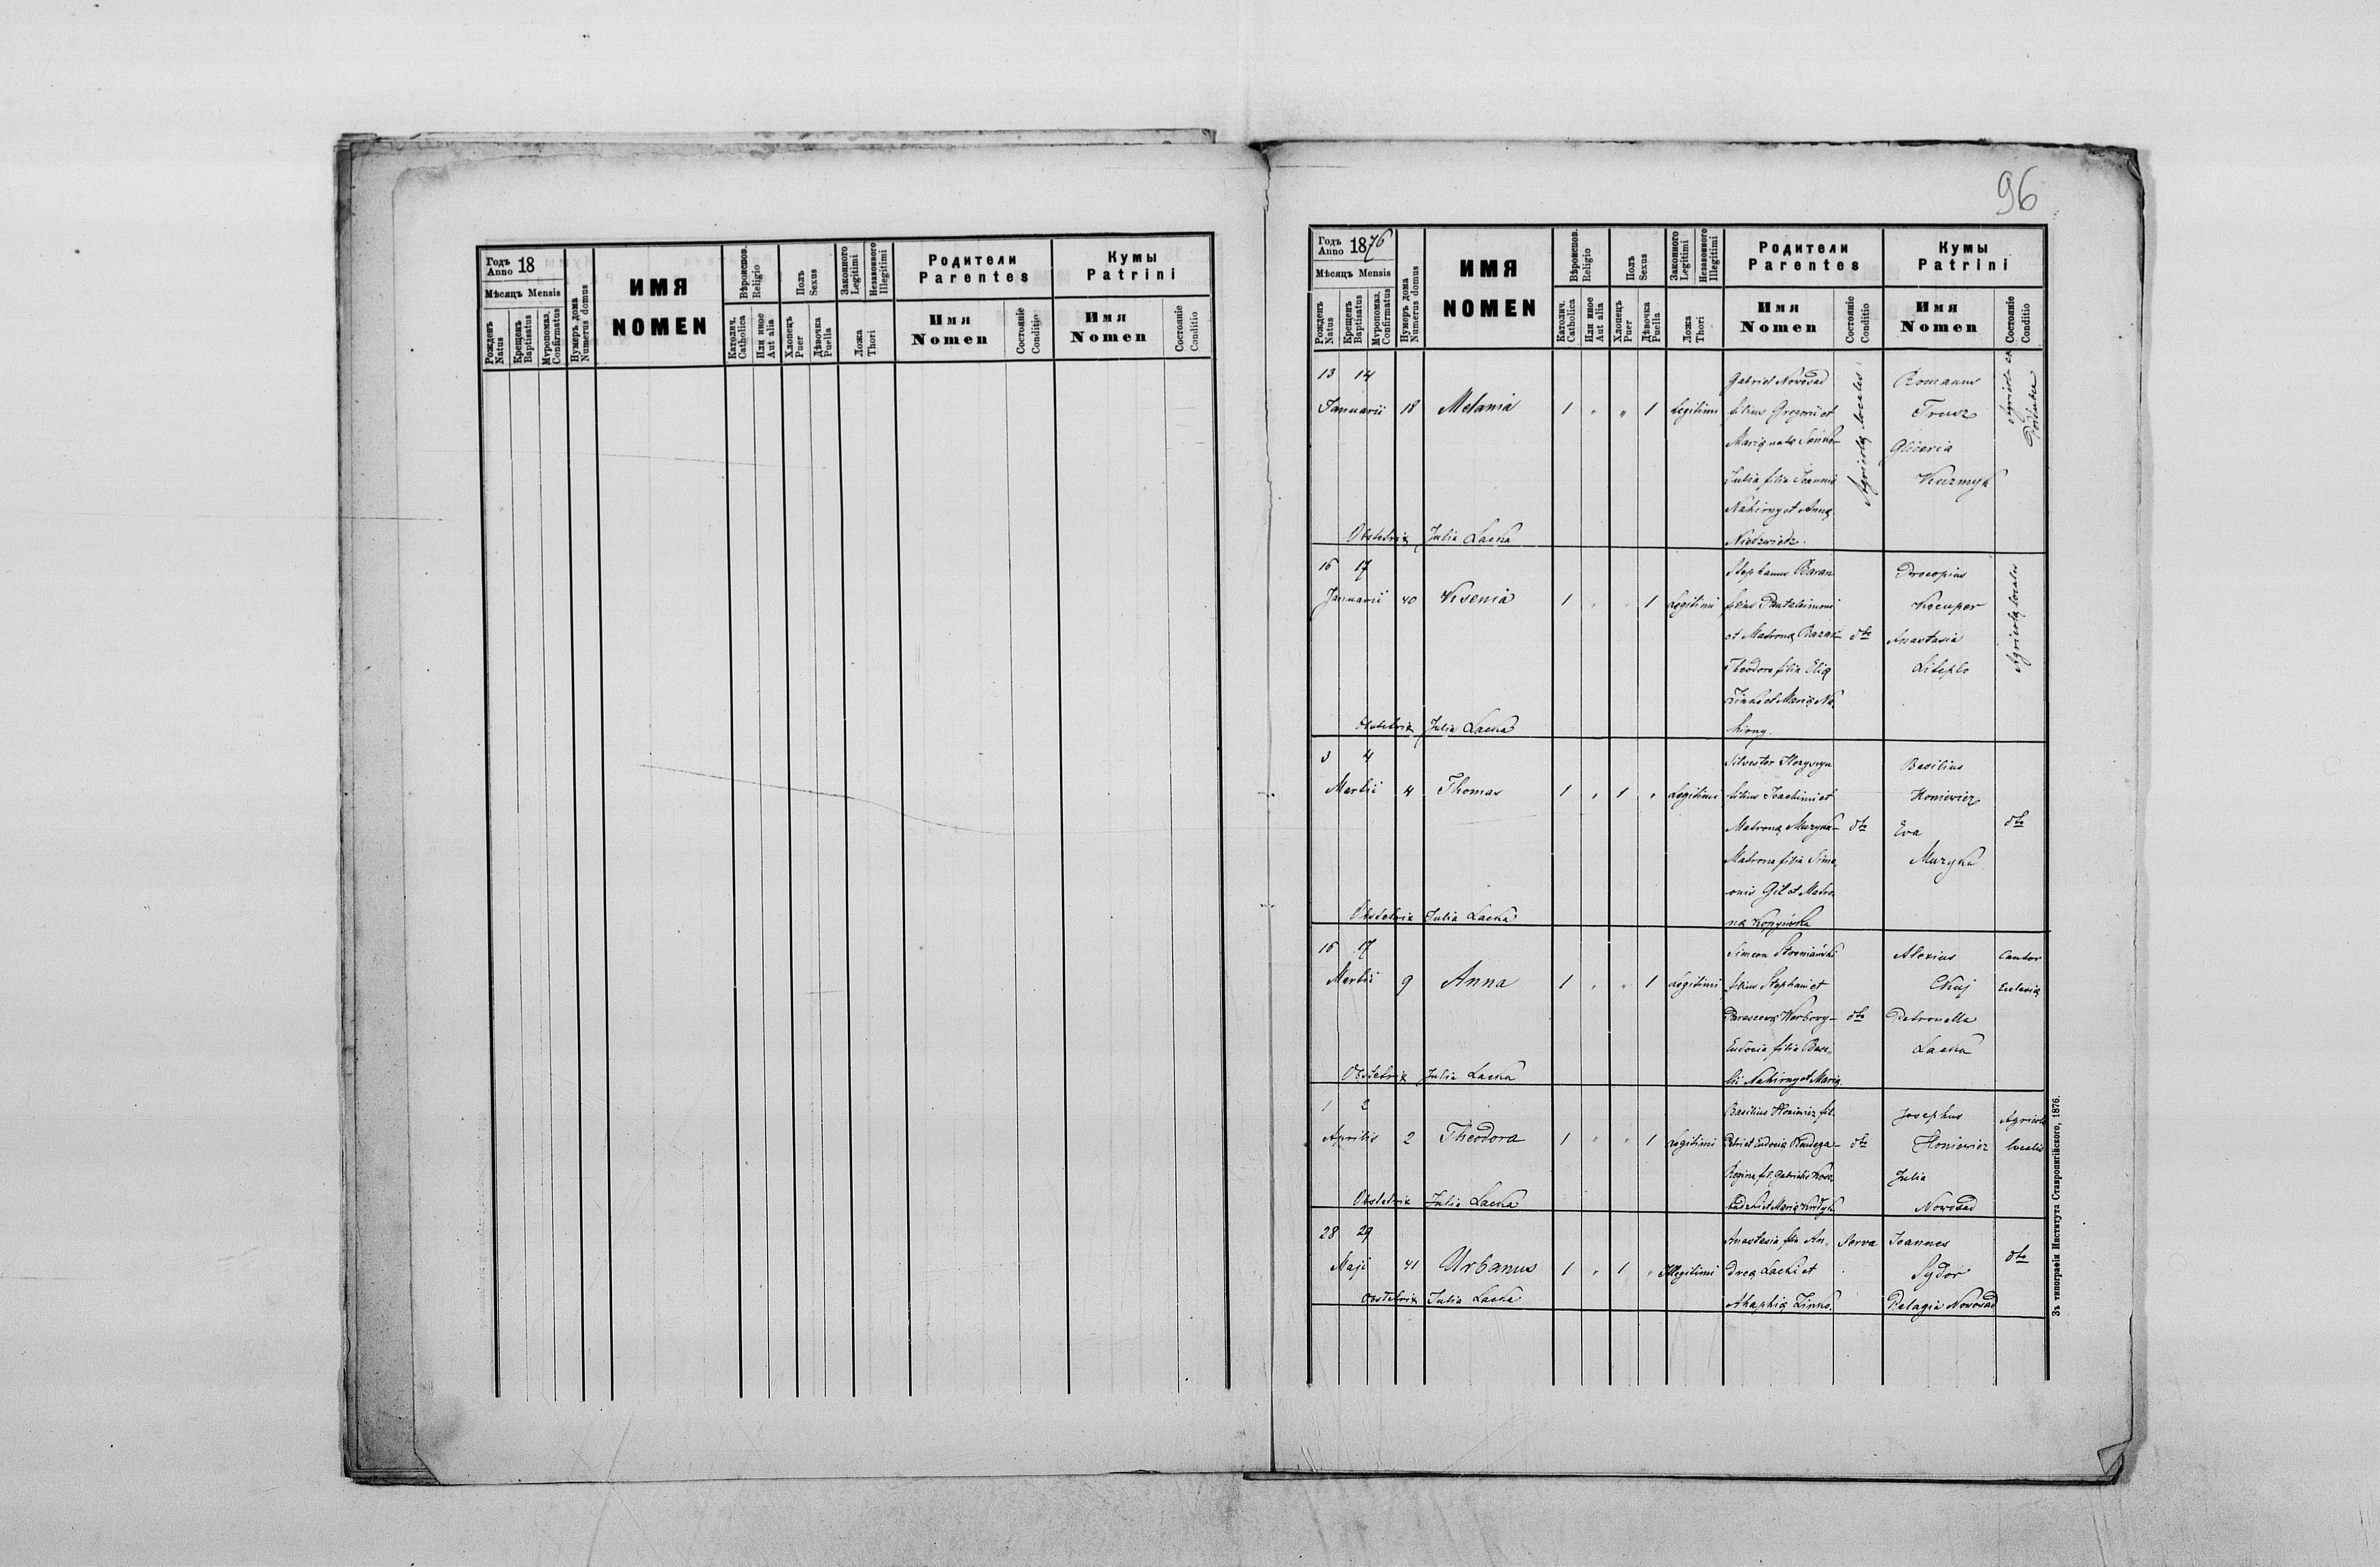 Годъ
Anno 18
Мѣсяцъ Mensis
Рожденъ
Natus
Крещенъ
Baptisatus
Мѵропомаз.
Confirmatus
Нумеръ дома
Numerus domus
ИМЯ
NOMEN
Вѣроиспов.
Religio
Католич.
Catholica
Или иное
Aut alia
Полъ
Sexus
Хлопецъ
Puer
Дѣвочка
Puella
Законного
Legitimi
Незаконного
Illegitimi
Ложа
Thori
Родители
Parentes
Имя
Nomen
Состояніе
Conditio
Кумы
Patrini
Имя
Nomen
Состояніе
Conditio
96
Годъ
Anno 1876
Мѣсяцъ Mensis
Рожденъ
Natus
Крещенъ
Baptisatus
Мѵропомаз.
Confirmatus
Нумеръ дома
Numerus domus
ИМЯ
NOMEN
Вѣроиспов.
Religio
Католич.
Catholica
Или иное
Aut alia
Полъ
Sexus
Хлопецъ
Puer
Дѣвочка
Puella
Законного
Legitimi
Незаконного
Illegitimi
Ложа
Thori
Родители
Parentes
Имя
Nomen
Состояніе
Conditio
Кумы
Patrini
Имя
Nomen
Состояніе
Conditio
13 14
Januarii 18 Melania 1 " " 1 Legitimi
Gabriel Nowosad
filius Gregorii et
Mariæ natæ
Julia filia Joannis
Nahirny et Annæ
Niedzwiedz.
Agricolæ locales
Romanus
Trusz
Gliceria
Kuzmyk
Obstetrix Julia Lacka
16 17
Januarii 40 Ksenia 1 " " 1 Legitimi
Stephanus Baran
filius Pantaleimoni
et Matronæ Baran dto
Theodora filia Eliæ
Zinko et Mariæ Na
hirny.
Procopius
Kocuper
Anastasia
Liteplo
Agricolæ locales
Obstetrix Julia Lacka
3 4
Martii 4 Thomas 1 " 1 " Legitimi
Silvester
filius Joachimi et
Matronæ Muzyka dto
Matrona filia Sime
onis Gil et Matro
næ
Basilius
Honiewicz
Eva
Muzyka
dto
Obstetrix Julia Lacka
16 17
Martii 9 Anna 1 " " 1 Legitimi
Simeon
filius Stephani et
Parascevæ Werbowy dto
Eudocia filia Basi
lii Nahirny et Mariæ
Alexius
Petronella
Lacka
Cantor
Eclesiæ
Obstetrix Julia Lacka
1 2
Aprilis 2 Theodora 1 " " 1 Legitimi
Basilius Honiewicz fil.
Petri et Eudociæ dto
Regina fil. Gabrielis
Josephus
Honiewicz
Julia
Nowosad
Agricola
localis
Obstetrix Julia Lacka
28 29
Maji 41 Urbanus 1 " 1 " Illegitimi
Anastasia filia An
dreæ Lacki et
Ahaphiæ Zinko.
Serva
Joannes
Sydor
Pelagia Nowosad
dto
Obstetrix Julia Lacka
Зъ типографіи Института Ставропигійского, 1876.